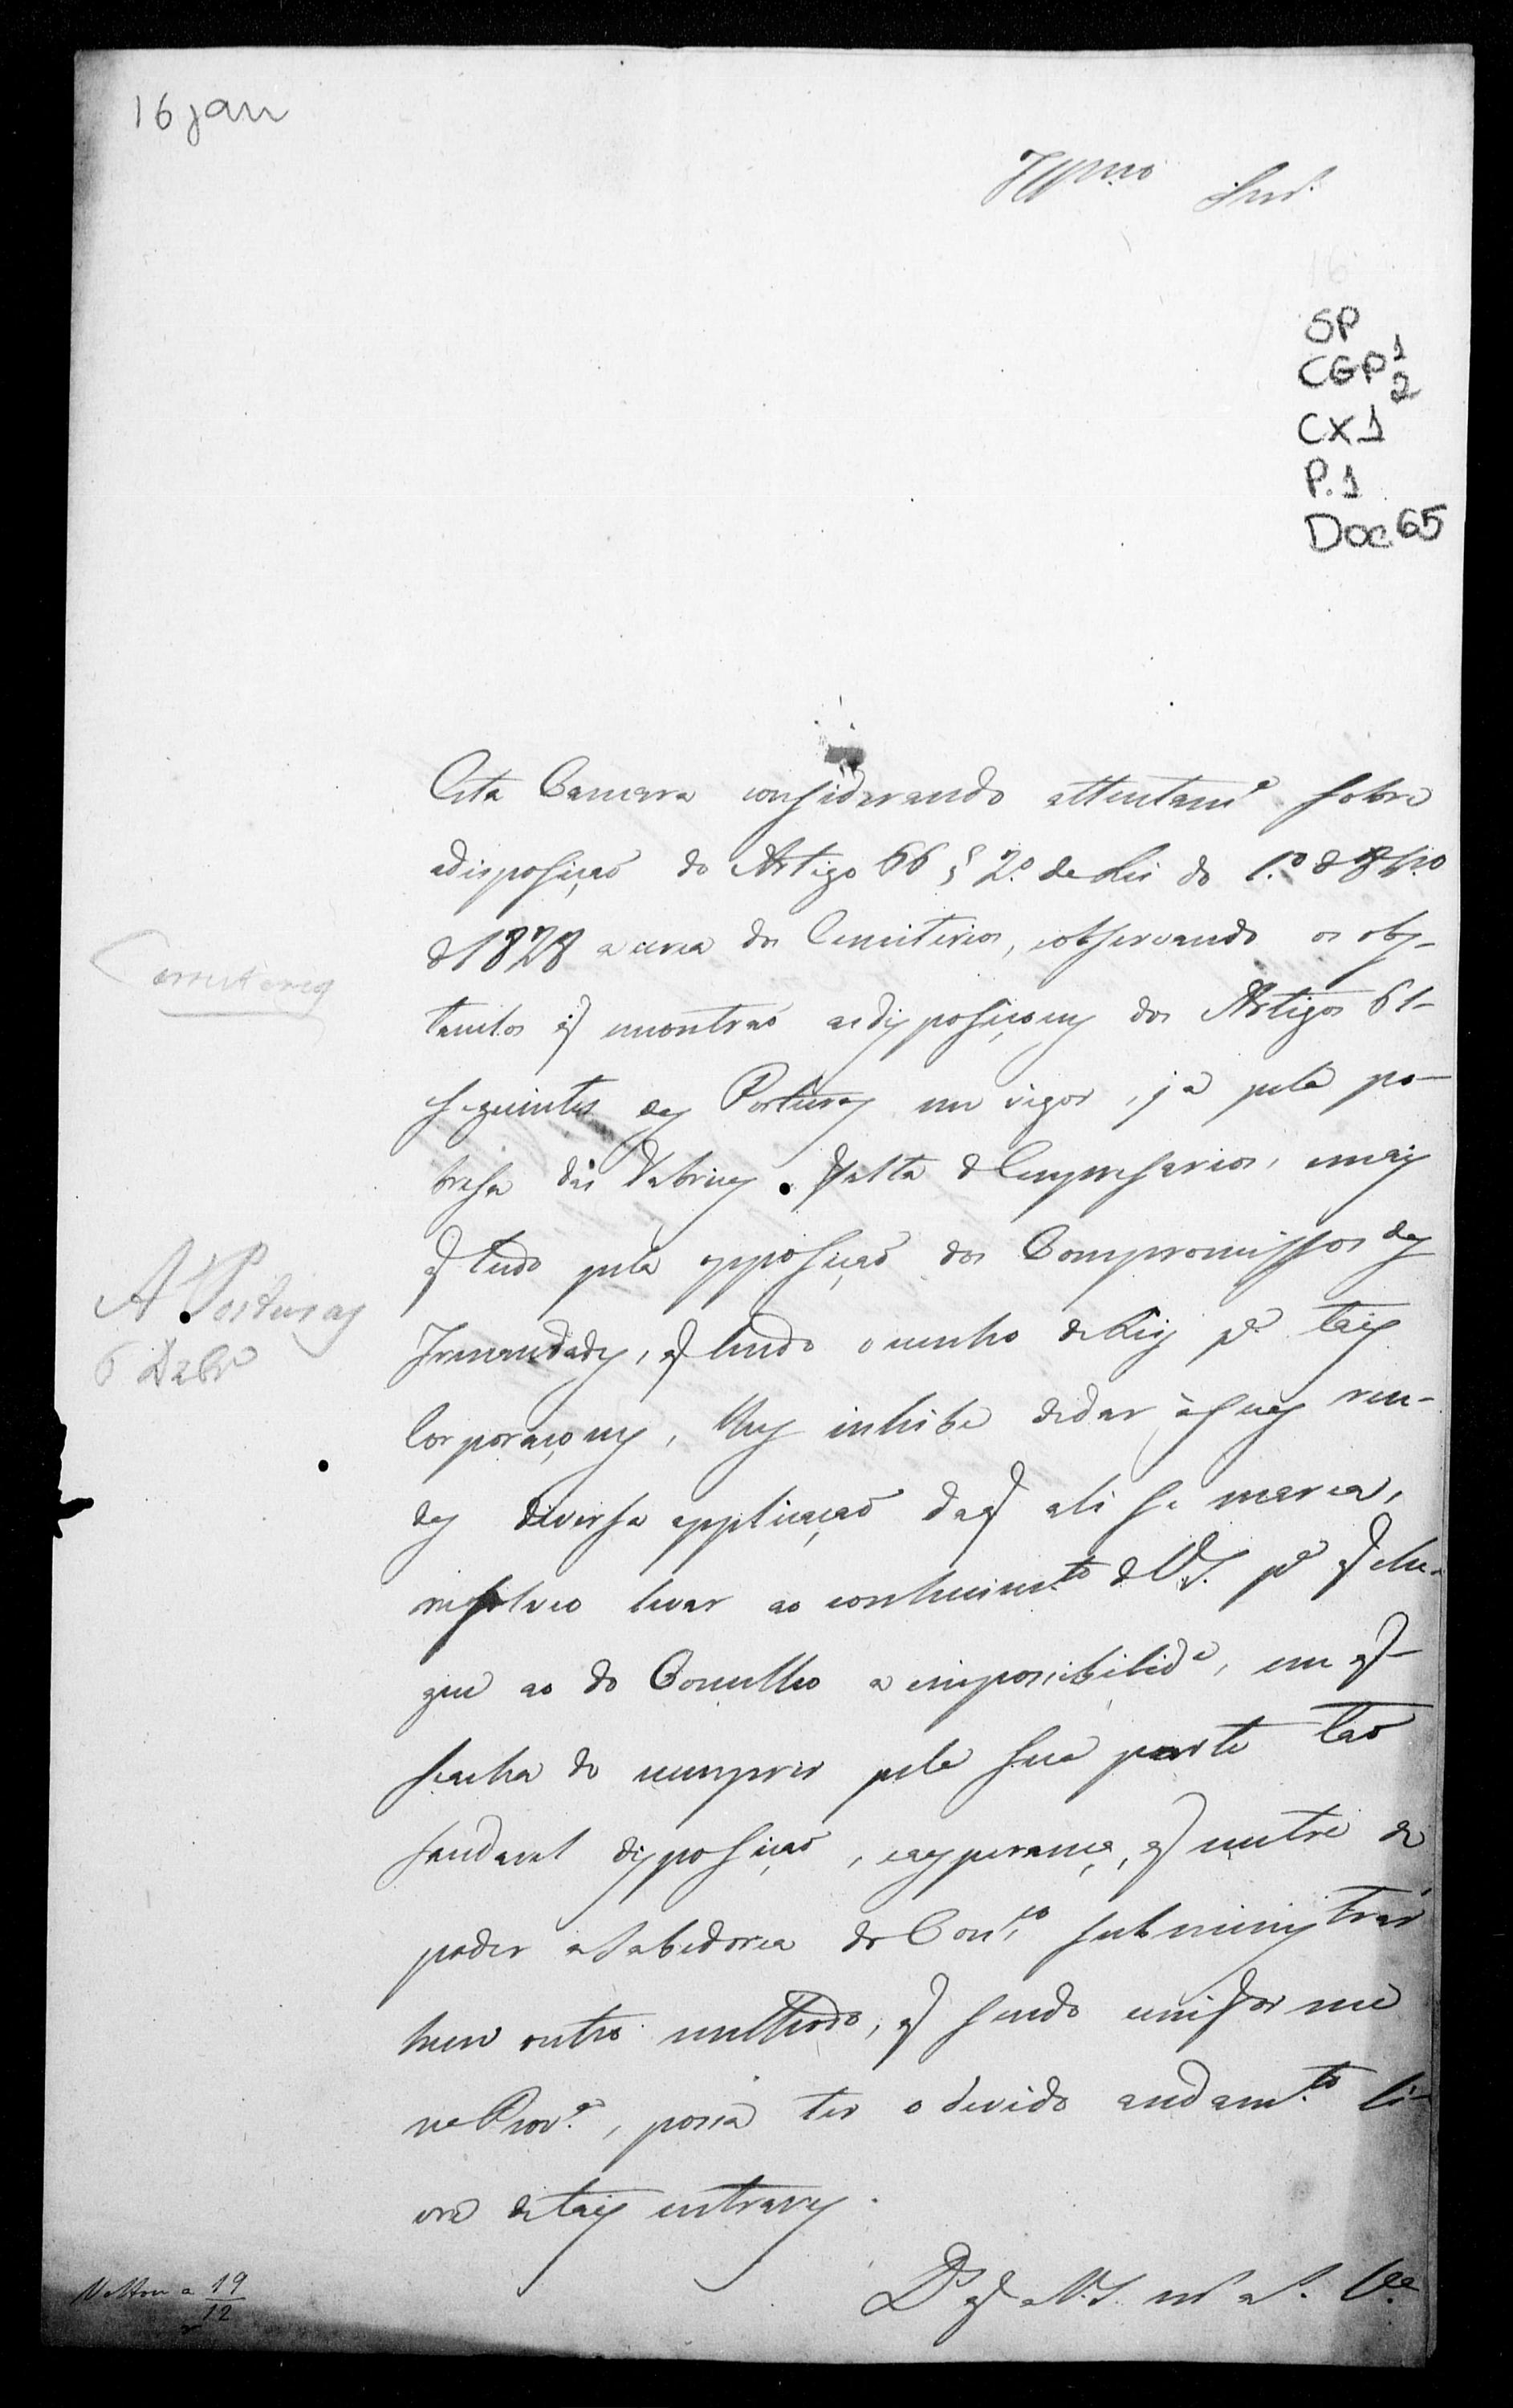 16 jan
Illmo Snr.
SP
CGP 1
2
CX 1
P. 1
Doc 65
Esta Camara considerando attentam.e sobre
adisposiçaõ do Artigo 66 § 2.º da Lei do 1.º d 8br.o
d 1828 acerca dos Cemiterios, eobservando os obs-
taculos q encontraõ asdisposiçoens dos Artigos 61-
seguintes das Posturas em vigor, já pela po-
bresa das Fabricas, falta d Empresarios, emais
q tudo pela opposiçaõ dos Compromissos das
Irmandades, q sendo o cunho de Leis p.a tais
Corporaçoens, lhes inhibe dedar ás suas ren-
das diversa applicaçaõ daq ali se marca,
resolveo levar ao conhecim.to d V.S. p.a q che-
gue ao do Conselho a impossibilid.e, em q
seacha de cumprir pela sua parte taõ
saudavel disposiçaõ, easperança, q nutre de
poder aSabedoria do Con.co subministrar
hum outro methodo, q sendo uniforme
na Prov.a, possa ter o devido andam.to li-
vre detais entraves.
D.s g.e a V.S. m.s a.s
Cemiterios
A Posturas
6 Debr.o
Voltou a 19
12